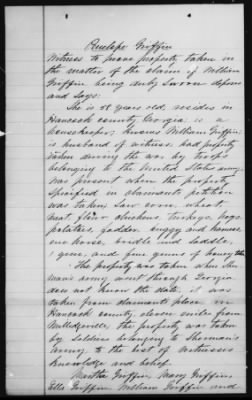 Penelope Griffin
Witness to prove property taken in
the matter of the claim of William
Griffin being duly sworn deposes
and says:
She is 58 years old, resides in
Hancock county Georgia is a
housekeeper; knows William Griffin
is husband of witness had property
taken during the war by troops
belonging to the United States army
was present when the property
specified in claimants petition
was taken, saw corn, wheat,
meat flour chickens, turkeys, hogs
potatoes, fodder, buggy and harness
one horse, bridle and saddle,
1 gun, and five gums of honey
The property was taken when Sher
mans army went through Georgia
does not know the date, it was
taken from claimants place in
Hancock county eleven miles from
Milledgeville, the property was taken
by soldiers belonging to Sherman's
army, to the best of witnesses
knowledge and belief.
Martha Griffin, Mary Griffin,
Ella Griffin, William Griffin and